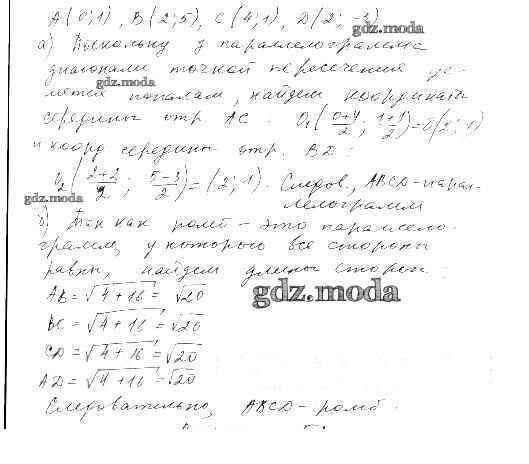 A(0;1), B(2;5), C(4;1), D(2;-3)
gdz.moda
а) Поскольку у параллелограмма
диагонали точкой пересечения де-
gdz.moda
лятся пополам, найдем координаты
середины отр. AC: O₁(0+4/2; 1+1/2)=O(2;1)
и коорд середины отр. BD:
O₂(2+2/2; 5-3/2)=(2;1). Следов., ABCD-парал-
лелограмм
gdz.moda
б) Так как ромб - это параллело-
грамм, у которого все стороны
равны, найдем длины сторон:
AB=√4+16=√20
gdz.moda
BC=√4+16=√20
CD=√4+16=√20
AD=√4+16=√20
Следовательно, ABCD-ромб.